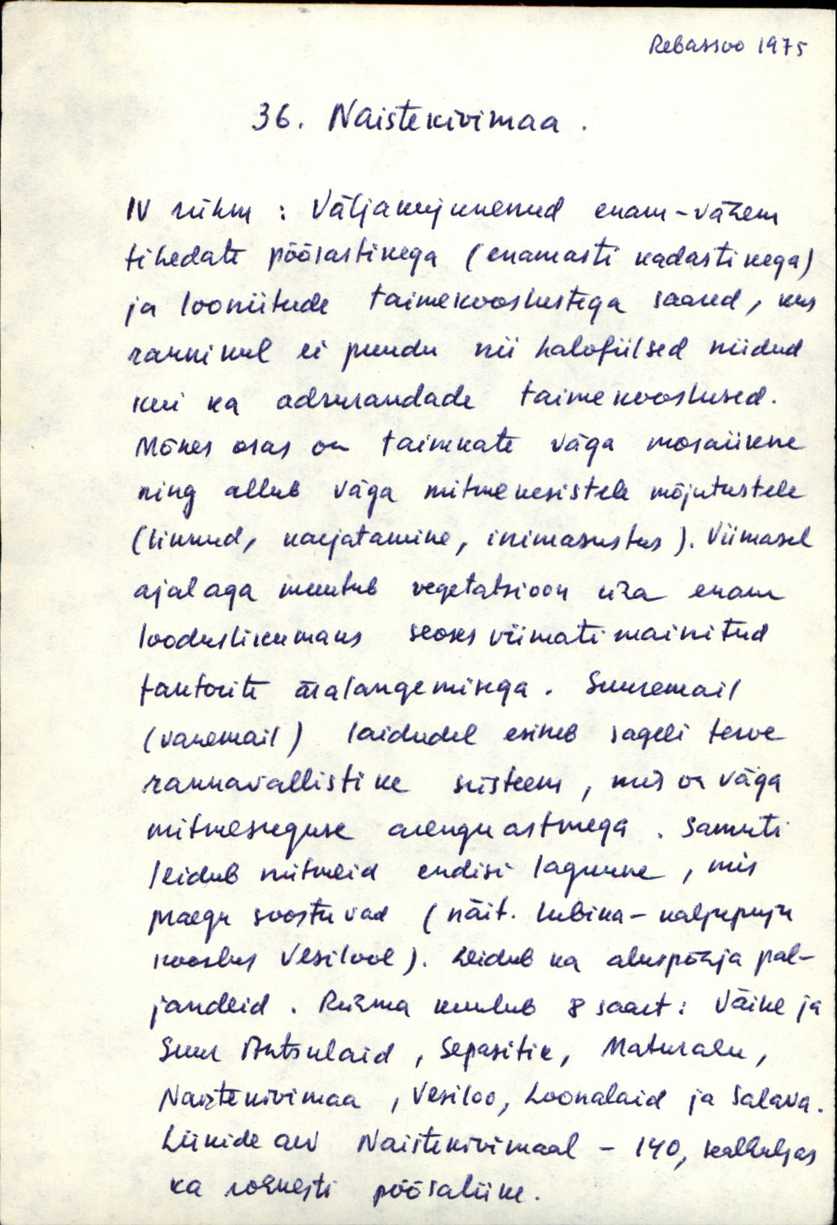 Rebassoo 1975
36. Naistekivimaa.
IV rühm : Väljakujunenud enam-vähem
tihedate põõsastikega (enamasti kadastikega)
ja looniitude taimekooslustega saared, kus
rannikul ei puudu nii halofiilsed niidud
kui ka adrurandade taimekooslused.
Mõnes osas on taimkate väga mosaiikne
ning allub väga mitmekesistele mõjutustele
(linnud, karjatamine, inimasustus). Viimasel
ajal aga muutub vegetatsioon üha enam
looduslikumaks seoses viimati mainitud
faktorite äralangemisega. Suuremail
(vanemail) laidudel esineb sageli terve
rannavallistike süsteem, mis on väga
mitmesuguse arenguastmega. Samuti
leidub mitmeid endisi laguune, mis
praegu soostuvad (näit. lubika-
kooslus Vesilool). Leidub ka aluspõhja pal-
jandeid. Rühma kuulub 8 saart: Väike ja
Suur Antsulaid, Sepasitik, Maturahu,
Naistekivimaa, Vesiloo, Loonalaid ja Salava.
Liikide arv Naistekivimaal - 140, sealhulgas
ka rohkesti põõsaliike.